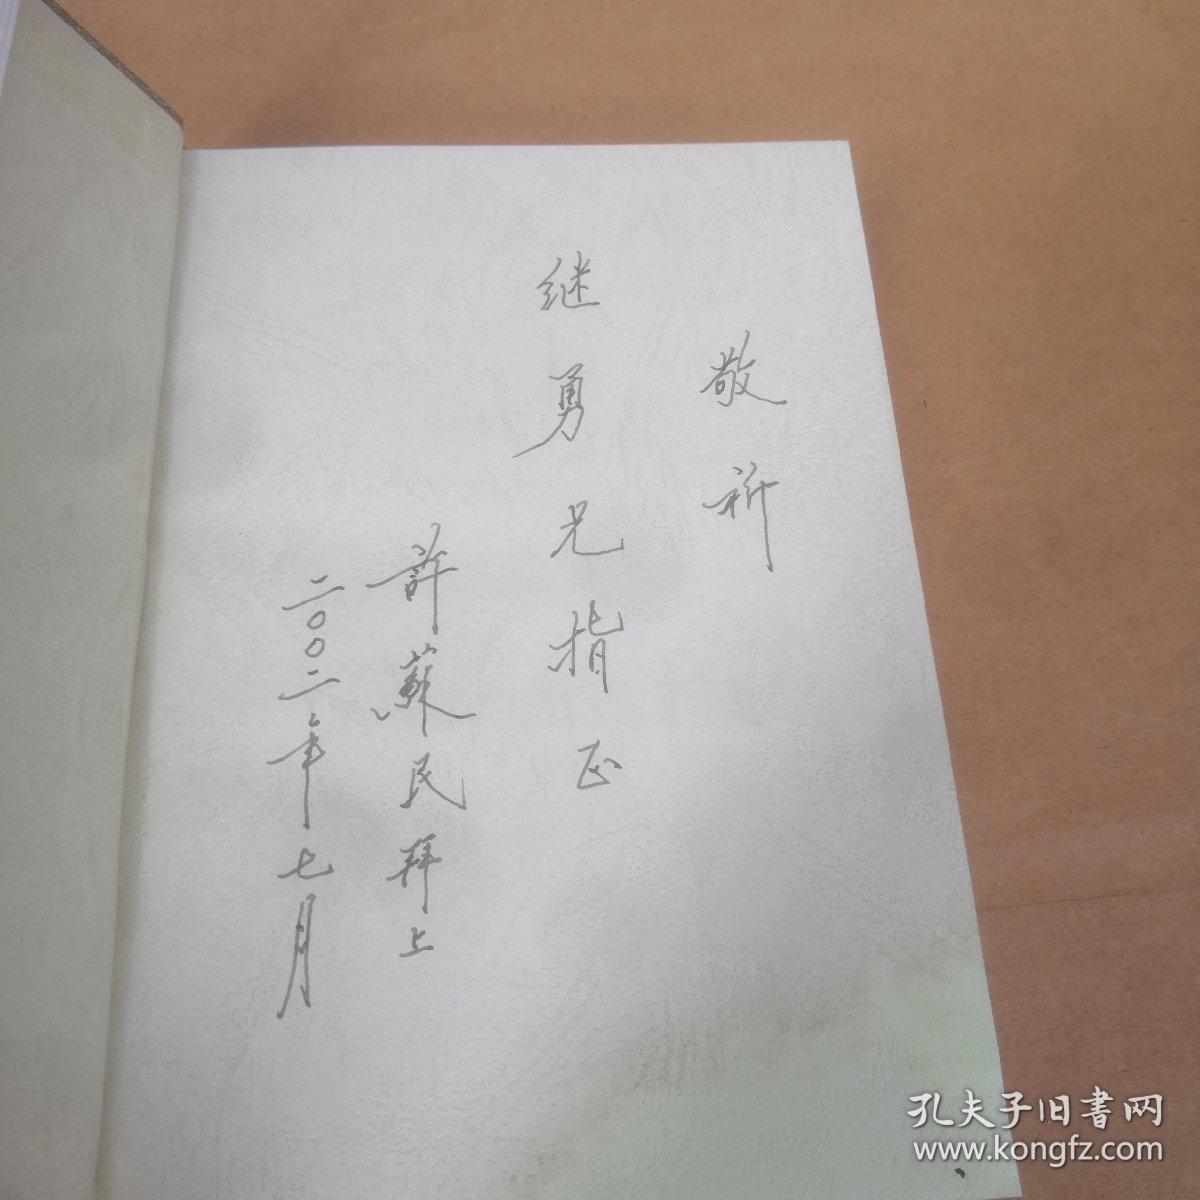 敬祈
继勇兄指正
許蘇民拜上
二〇〇二年七月
孔夫子旧書网
www.kongfz.com